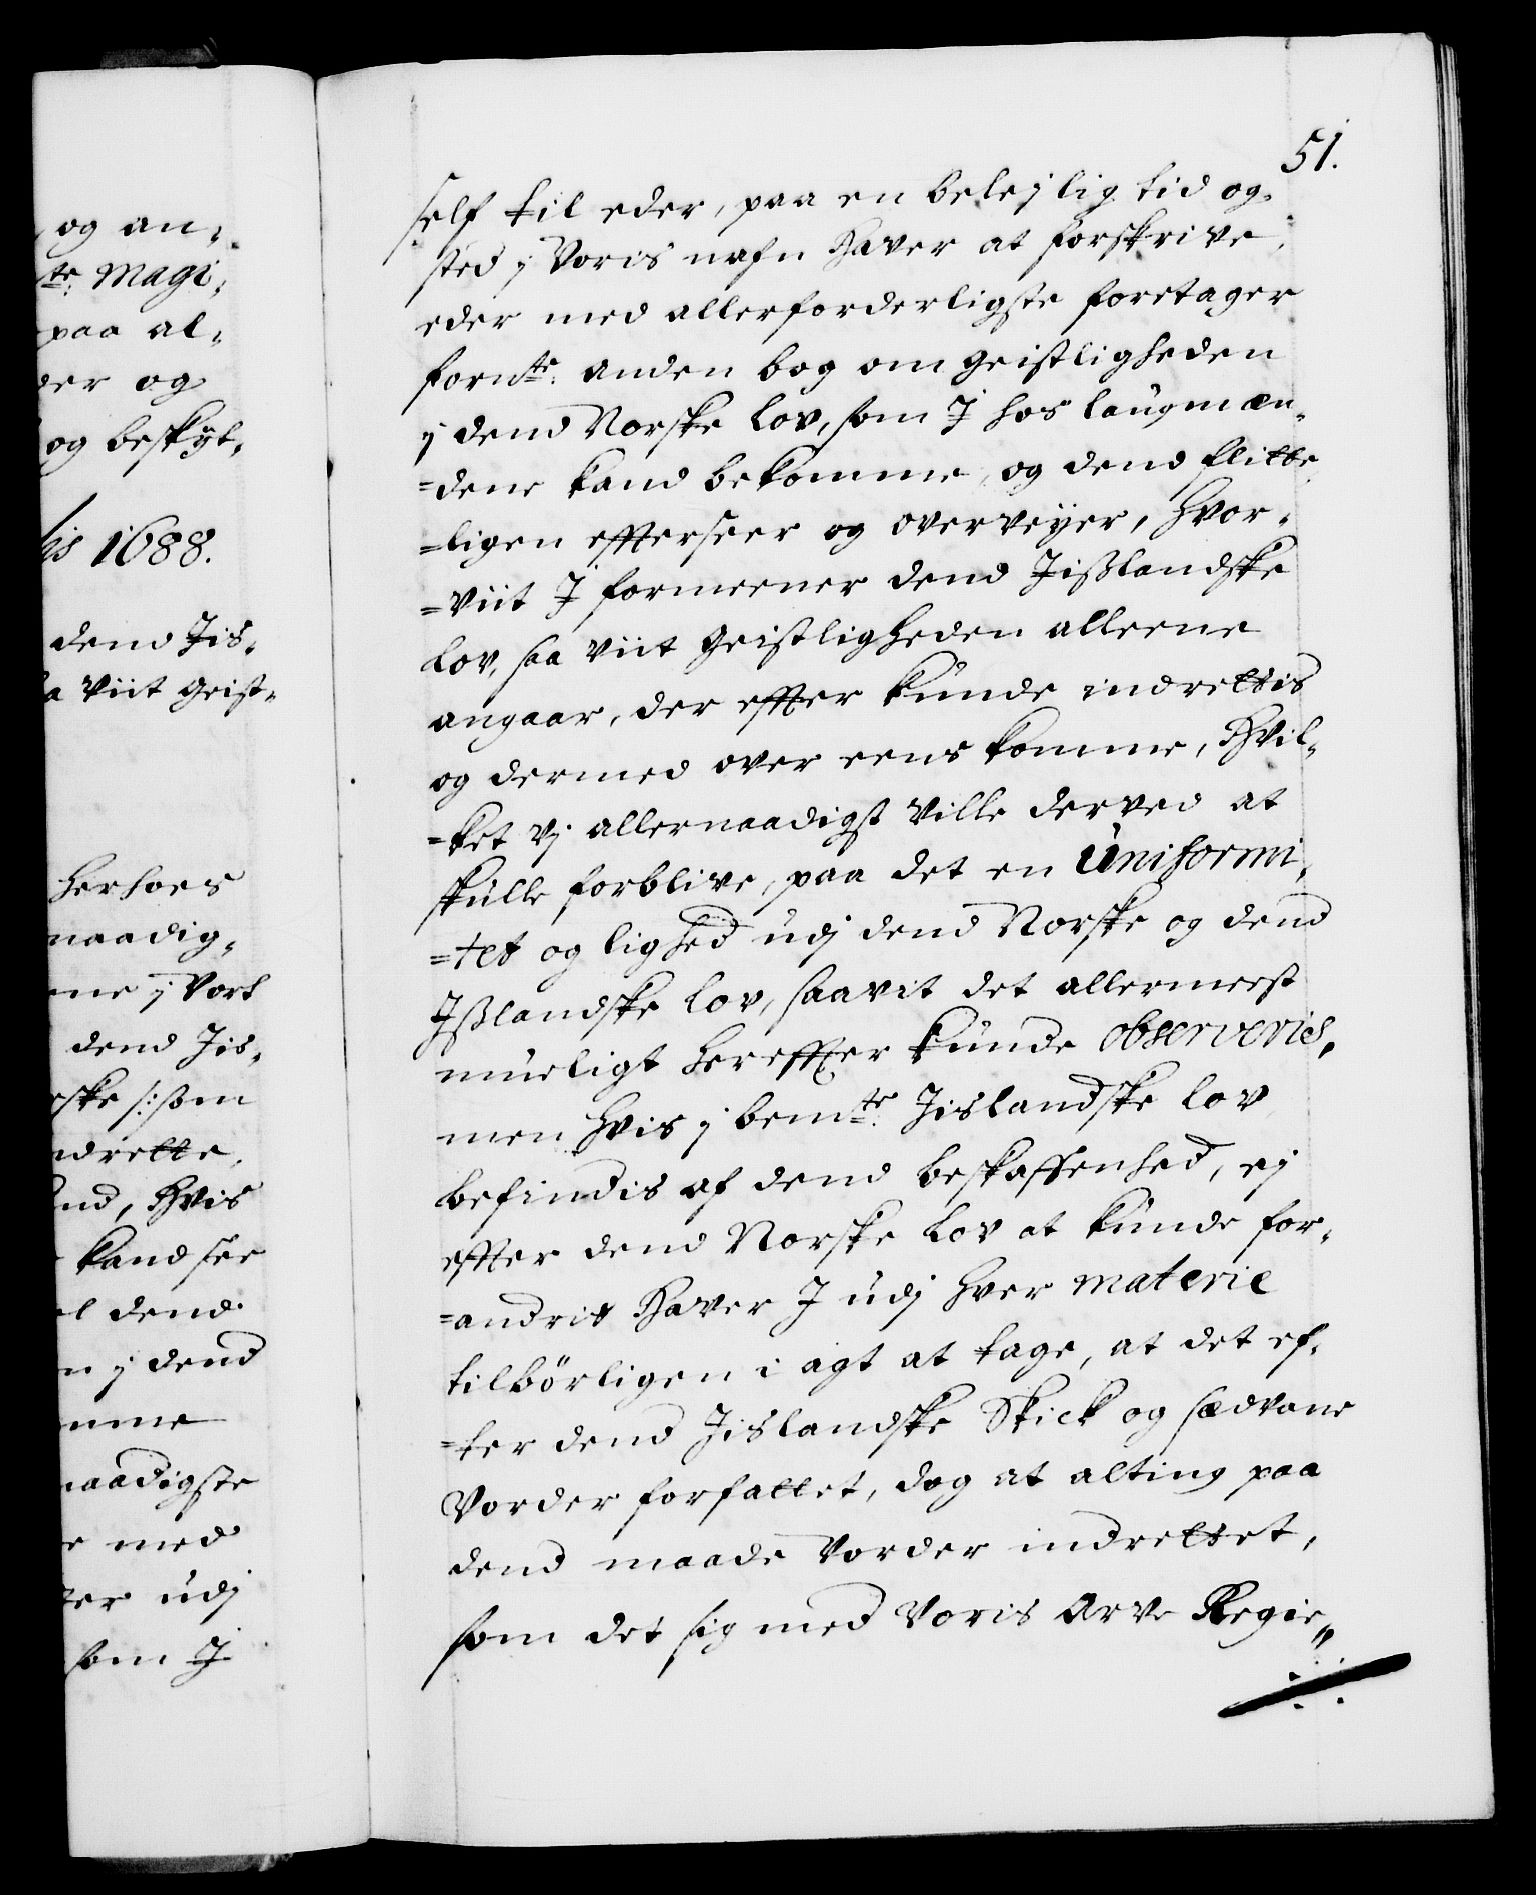 og an„
te: Magi„
paa al„
der og
og beskÿt„
lis 1688.
dend Jis„
a viit Geist„
herhoes
naadig„
me j Vort
dend Jis„
ske /: som
ndrette,
nd, Hvis
kand see
el dend
n j dend
mme
naadigste
e med
ter udj
som J
51.
self til eder, paa en belejlig tid og
sted j Voris nafn Haver at forskrive,
eder med allerforderligste foretager
fornte: anden bog om Geistligheden
j dend Norske Lov, som J hos laugmæn„
=dene kand bekomme, og dend flitte„
=ligen effterseer og overveÿer, Hvor„
=viit J formeener dend Jißlandske
Lov, saa viit Geistligheden alleene
angaar, der effter kunde indrettis
og dermed over eens komme, Hvil„
=ket Vj allernaadigst ville derved at
skulle forblive, paa det en Uniformi„
=tet og lighed udj dend Norske og dend
Jßlandske Lov, saavit det allermeest
mueligt hereffter kunde observeris,
men Hvis j bemte: Jislandske lov
befindis af dend beskaffenhed, ej
effter dend Norske Lov at kunde for„
=andris Haver J udj hver materie
tilbörligen i agt at tage, at det ef„
=ter dend Jislandske Skick og sædvane
Vorder forfattet, dog at alting paa
dend maade Vorder indrettet,
som det sig med Voris Arve Regie„